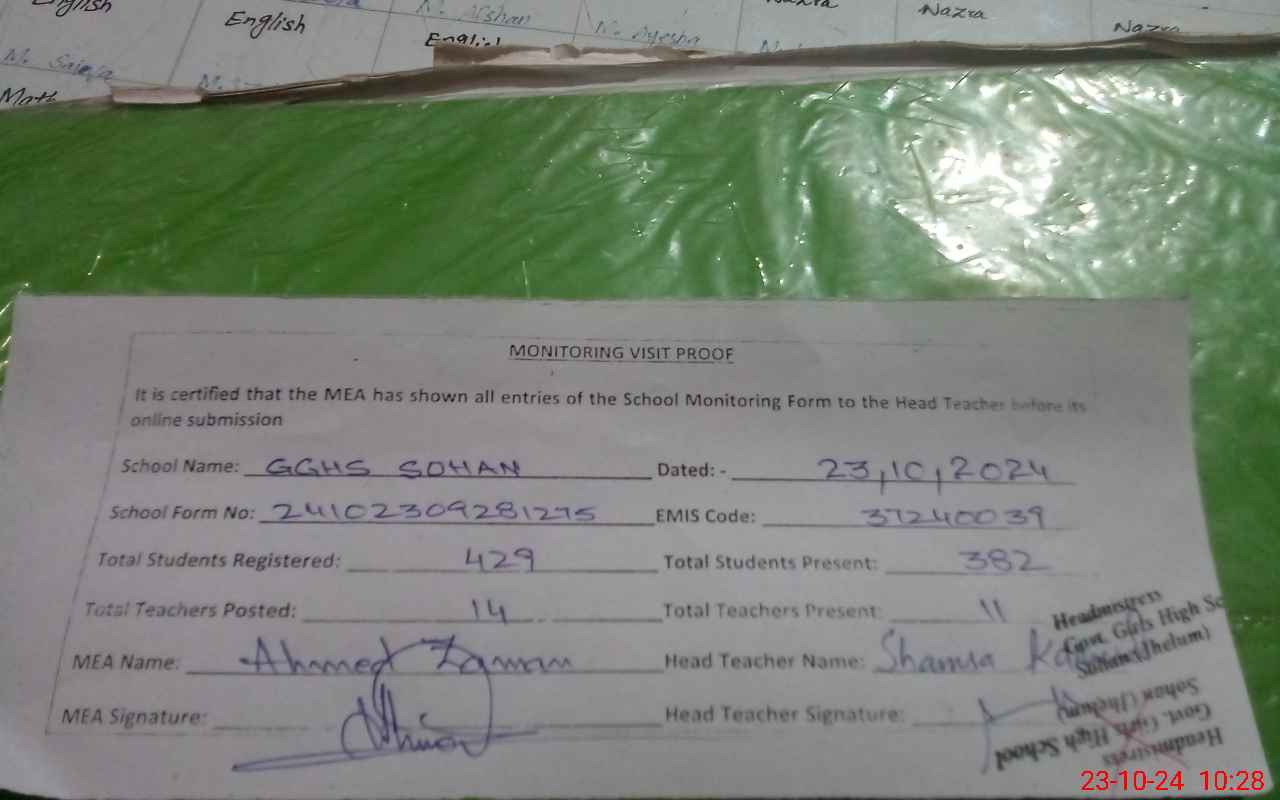 English
English
M. Afshan
English
M. Ayesha
Nazra
Nazra
Nazra
M. Saima
Math
MONITORING VISIT PROOF
It is certified that the MEA has shown all entries of the School Monitoring Form to the Head Teacher before its
online submission
School Name: GGHS SOHAN Dated: - 23,10,2024
School Form No: 24102309281275 EMIS Code: 37240039
Total Students Registered: 429 Total Students Present: 382
Total Teachers Posted: 14 Total Teachers Present: 11
Headmistress
Govt. Girls High Sc
Sohan (Jhelum)
MEA Name: Ahmed Zaman Head Teacher Name: Shamsa
MEA Signature: Head Teacher Signature:
Headmistress
Govt. Girls High School
Sohan (Jhelum)
23-10-24 10:28